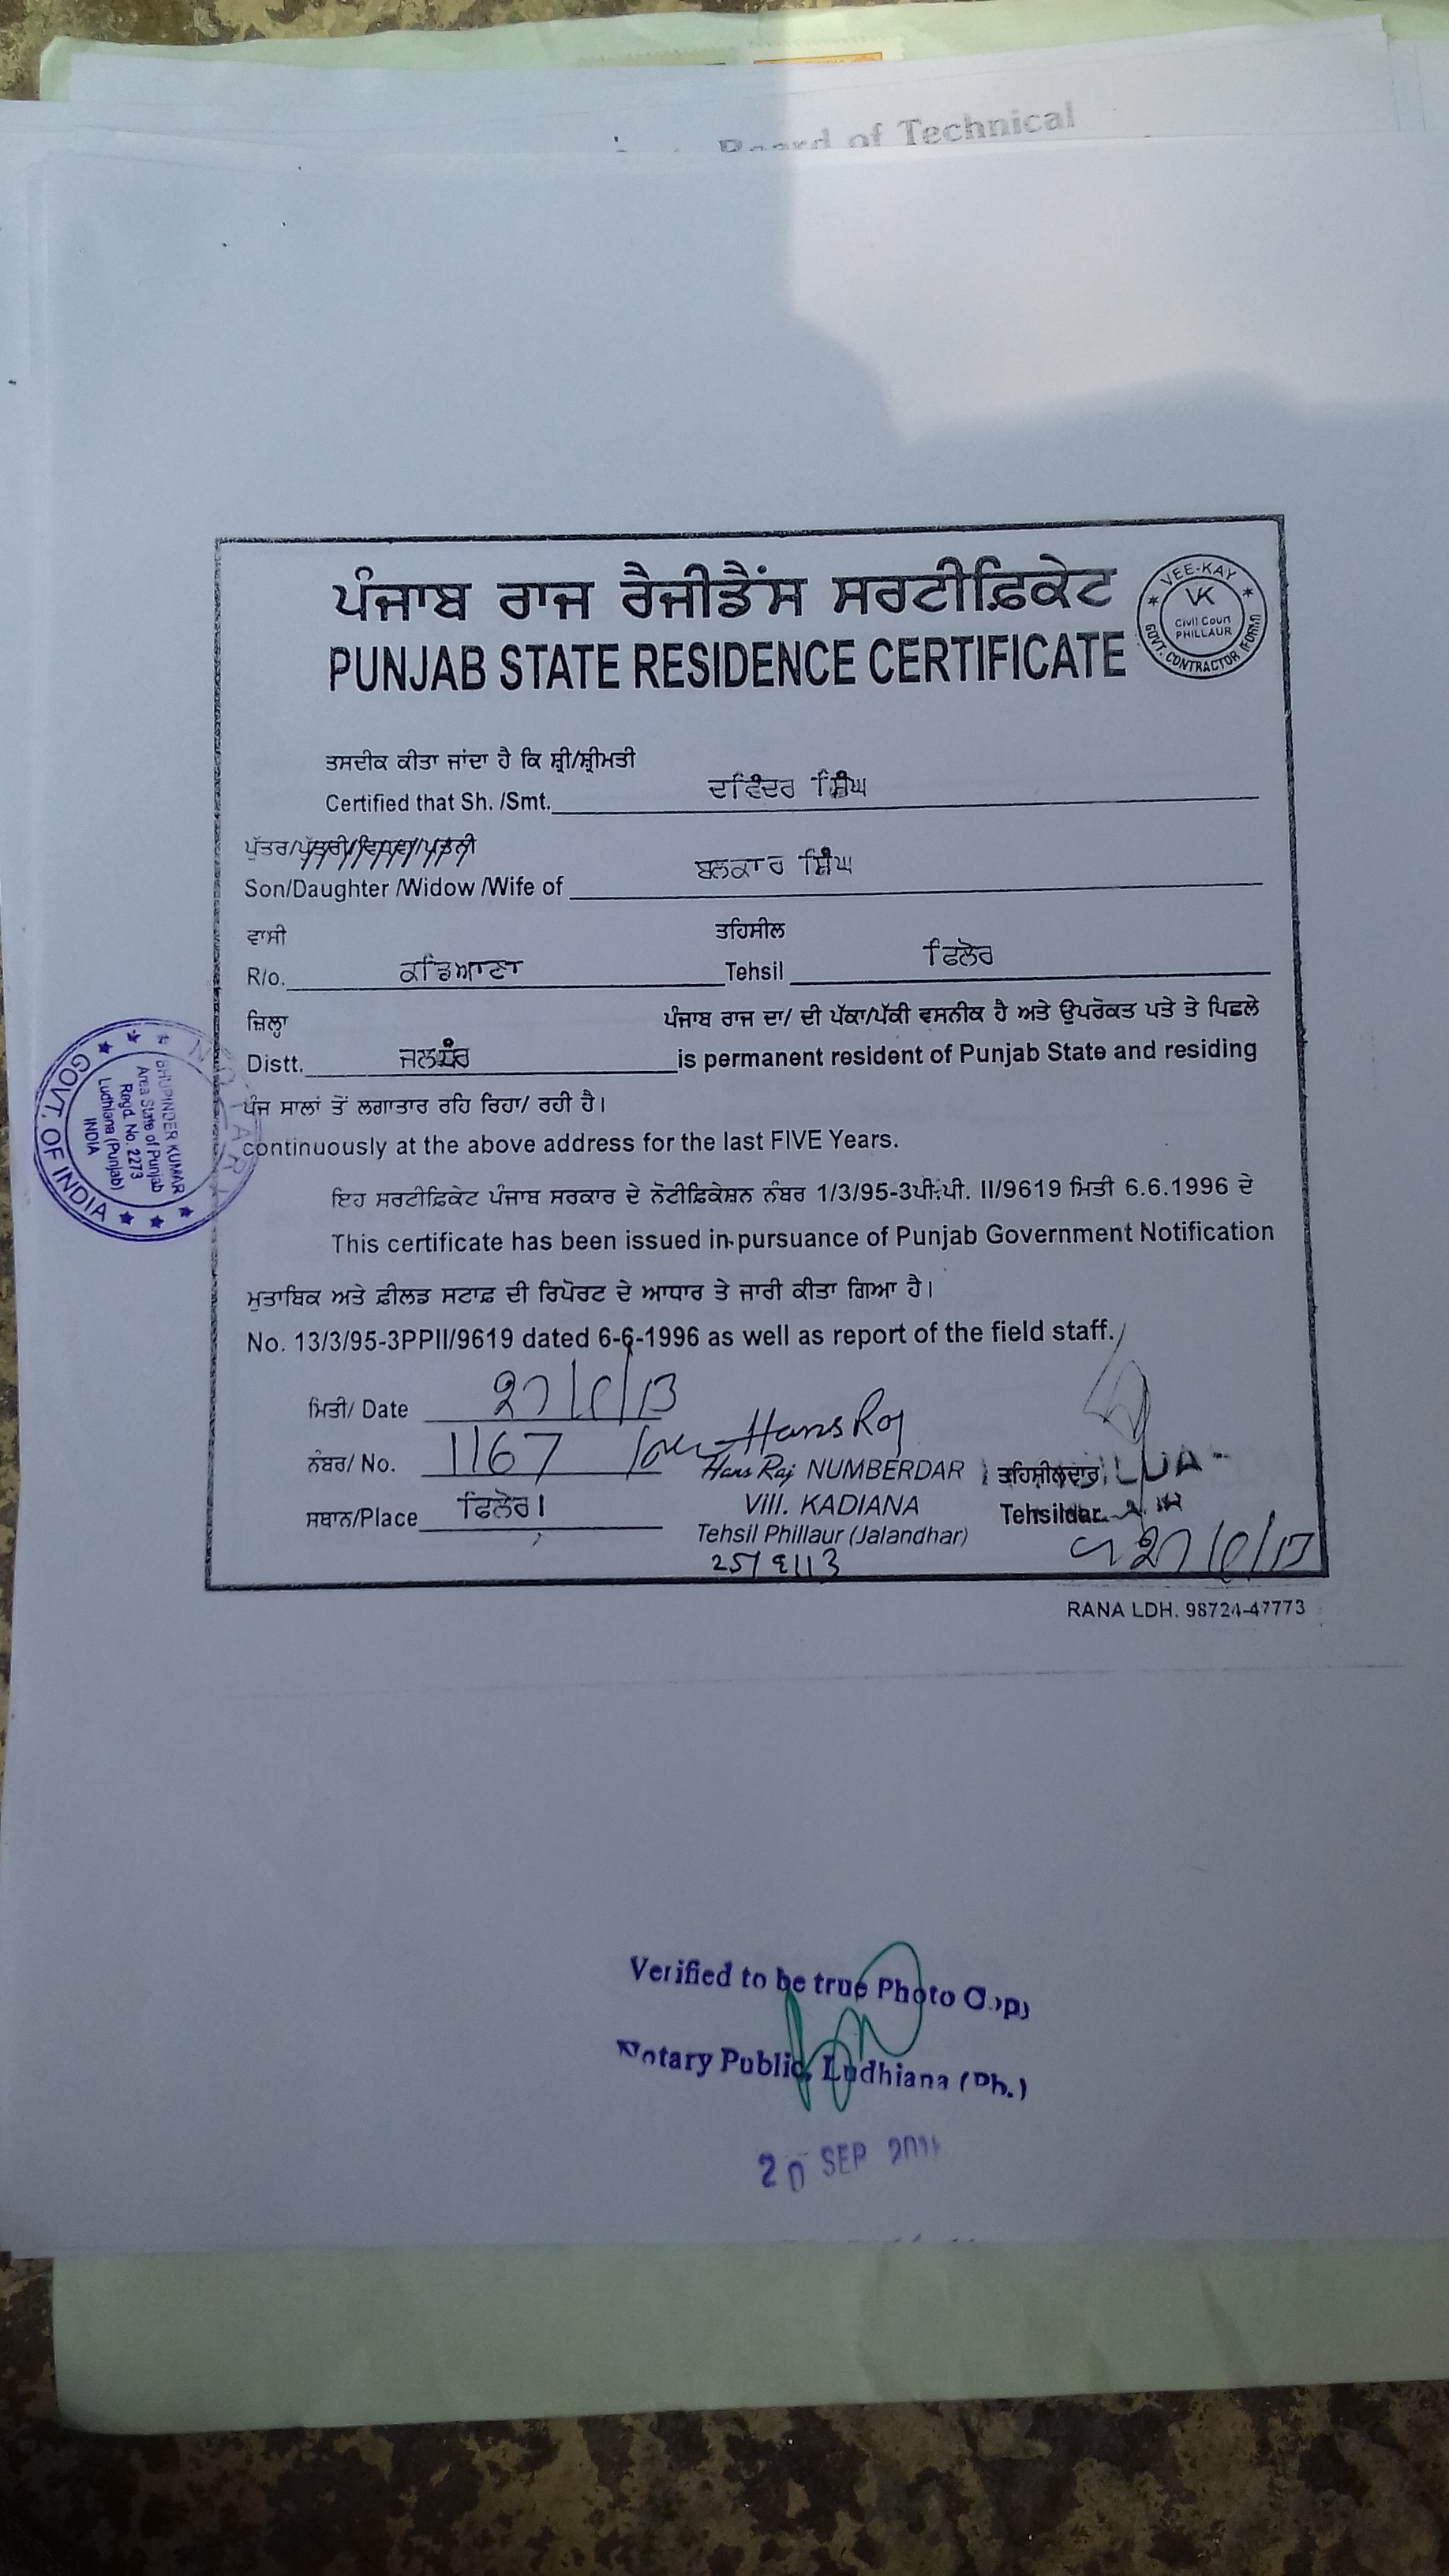 ਪੰਜਾਬ ਰਾਜ ਰੈਜੀਡੈਂਸ ਸਰਟੀਫਿਕੇਟ
PUNJAB STATE RESIDENCE CERTIFICATE
VEE-KAY
VK
Civil Court
PHILLAUR
GOVT. CONTRACTOR (FORM)
ਤਸਦੀਕ ਕੀਤਾ ਜਾਂਦਾ ਹੈ ਕਿ ਸ਼੍ਰੀ/ਸ਼੍ਰੀਮਤੀ
Certified that Sh. /Smt. ਦਵਿੰਦਰ ਸਿੰਘ
ਪੁੱਤਰ/ਪੁੱਤਰੀ/ਵਿਧਵਾ/ਪਤਨੀ
Son/Daughter /Widow /Wife of ਬਲਕਾਰ ਸਿੰਘ
ਵਾਸੀ ਤਹਿਸੀਲ
R/o. ਕਡਿਆਣਾ Tehsil ਫਿਲੌਰ
ਜ਼ਿਲ੍ਹਾ ਪੰਜਾਬ ਰਾਜ ਦਾ/ ਦੀ ਪੱਕਾ/ਪੱਕੀ ਵਸਨੀਕ ਹੈ ਅਤੇ ਉਪਰੋਕਤ ਪਤੇ ਤੇ ਪਿਛਲੇ
Distt. ਜਲੰਧਰ is permanent resident of Punjab State and residing
ਪੰਜ ਸਾਲਾਂ ਤੋਂ ਲਗਾਤਾਰ ਰਹਿ ਰਿਹਾ/ ਰਹੀ ਹੈ।
continuously at the above address for the last FIVE Years.
ਇਹ ਸਰਟੀਫਿਕੇਟ ਪੰਜਾਬ ਸਰਕਾਰ ਦੇ ਨੋਟੀਫਿਕੇਸ਼ਨ ਨੰਬਰ 1/3/95-3ਪੀ.ਪੀ. II/9619 ਮਿਤੀ 6.6.1996 ਦੇ
This certificate has been issued in pursuance of Punjab Government Notification
ਮੁਤਾਬਿਕ ਅਤੇ ਫੀਲਡ ਸਟਾਫ ਦੀ ਰਿਪੋਰਟ ਦੇ ਆਧਾਰ ਤੇ ਜਾਰੀ ਕੀਤਾ ਗਿਆ ਹੈ।
No. 13/3/95-3PPII/9619 dated 6-6-1996 as well as report of the field staff.
ਮਿਤੀ/ Date
ਨੰਬਰ/ No. 1167
ਸਥਾਨ/Place ਫਿਲੌਰ।
Hans Raj
Hans Raj NUMBERDAR
VIII. KADIANA
Tehsil Phillaur (Jalandhar)
ਤਹਿਸੀਲਦਾਰ
Tehsildar
RANA LDH. 98724-47773
NOTARY
BHUPINDER KUMAR
Area State of Punjab
Regd. No. 2273
Ludhiana (Punjab)
INDIA
GOVT. OF INDIA
Verified to be true Photo Copy
Notary Public, Ludhiana (Pb.)
20 SEP
Board of Technical